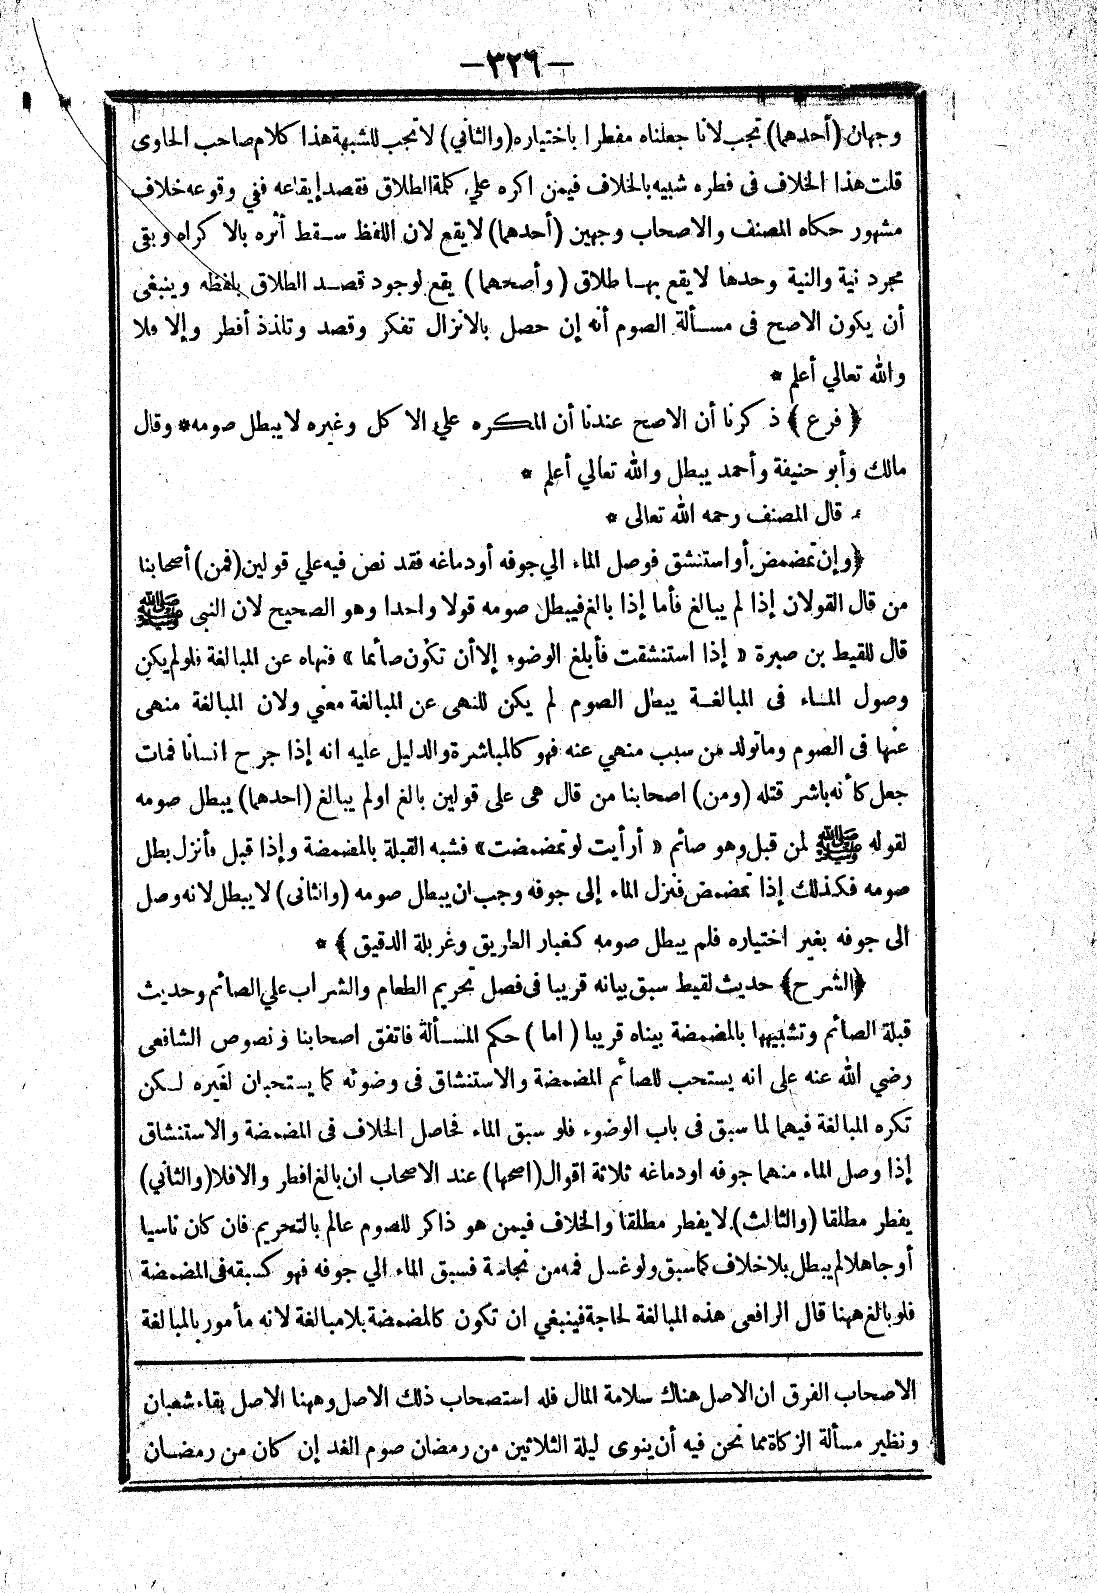 —٣٢٦—
وجهان (أحدهما) تجب لأنا جعلناه مفطرا باختياره (والثاني) لا تجب للشبهة هذا كلام صاحب الحاوى
قلت هذا الخلاف فى فطره شبيه بالخلاف فيمن اكره علي كلمة الطلاق فقصد إيقاعه ففي وقوعه خلاف
مشهور حكاه المصنف والاصحاب وجهين (أحدهما) لا يقع لان اللفظ سقط أثره بالاكراه وبقى
مجرد نية والنية وحدها لا يقع بها طلاق (وأصحهما) يقع لوجود قصد الطلاق بلفظه وينبغى
أن يكون الاصح فى مسألة الصوم أنه إن حصل بالانزال تفكر وقصد وتلذذ أفطر وإلا فلا
والله تعالي أعلم *
﴿فرع﴾ ذكرنا أن الاصح عندنا أن المكره علي الاكل وغيره لا يبطل صومه * وقال
مالك وأبو حنيفة وأحمد يبطل والله تعالي أعلم *
قال المصنف رحمه الله تعالى *
﴿وإن تمضمض أو استنشق فوصل الماء الي جوفه أو دماغه فقد نص فيه علي قولين (فمن) أصحابنا
من قال القولان إذا لم يبالغ فأما إذا بالغ فيبطل صومه قولا واحدا وهو الصحيح لان النبى ﷺ
قال للقيط بن صبرة « إذا استنشقت فأبلغ الوضوء إلا أن تكون صائما » فنهاه عن المبالغة فلو لم يكن
وصول الماء فى المبالغة يبطل الصوم لم يكن للنهى عن المبالغة معني ولان المبالغة منهى
عنها فى الصوم وما تولد من سبب منهي عنه فهو كالمباشرة والدليل عليه انه إذا جرح انسانا فمات
جعل كأنه باشر قتله (ومن) اصحابنا من قال هى على قولين بالغ او لم يبالغ (احدهما) يبطل صومه
لقوله ﷺ لمن قبل وهو صائم « أرأيت لو تمضمضت » فشبه القبلة بالمضمضة وإذا قبل فأنزل بطل
صومه فكذلك إذا تمضمض فنزل الماء إلى جوفه وجب ان يبطل صومه (والثانى) لا يبطل لانه وصل
الى جوفه بغير اختياره فلم يبطل صومه كغبار الطريق وغربلة الدقيق ﴾ *
﴿الشرح﴾ حديث لقيط سبق بيانه قريبا فى فصل تحريم الطعام والشراب علي الصائم وحديث
قبلة الصائم وتشبيهها بالمضمضة بيناه قريبا (اما) حكم المسألة فاتفق اصحابنا ونصوص الشافعى
رضي الله عنه على انه يستحب للصائم المضمضة والاستنشاق فى وضوئه كما يستحبان لغيره لكن
تكره المبالغة فيهما لما سبق فى باب الوضوء فلو سبق الماء فحاصل الخلاف فى المضمضة والاستنشاق
إذا وصل الماء منهما جوفه او دماغه ثلاثة اقوال (اصحها) عند الاصحاب ان بالغ افطر والا فلا (والثاني)
يفطر مطلقا (والثالث) لا يفطر مطلقا والخلاف فيمن هو ذاكر للصوم عالم بالتحريم فان كان ناسيا
أو جاهلا لم يبطل بلا خلاف كما سبق ولو غسل فمه من نجاسة فسبق الماء الي جوفه فهو كسبقه فى المضمضة
فلو بالغ ههنا قال الرافعى هذه المبالغة لحاجة فينبغي ان تكون كالمضمضة بلا مبالغة لانه مأمور بالمبالغة
الاصحاب الفرق ان الاصل هناك سلامة المال فله استصحاب ذلك الاصل وههنا الاصل بقاء شعبان
ونظير مسألة الزكاة مما نحن فيه أن ينوى ليلة الثلاثين من رمضان صوم الغد إن كان من رمضان